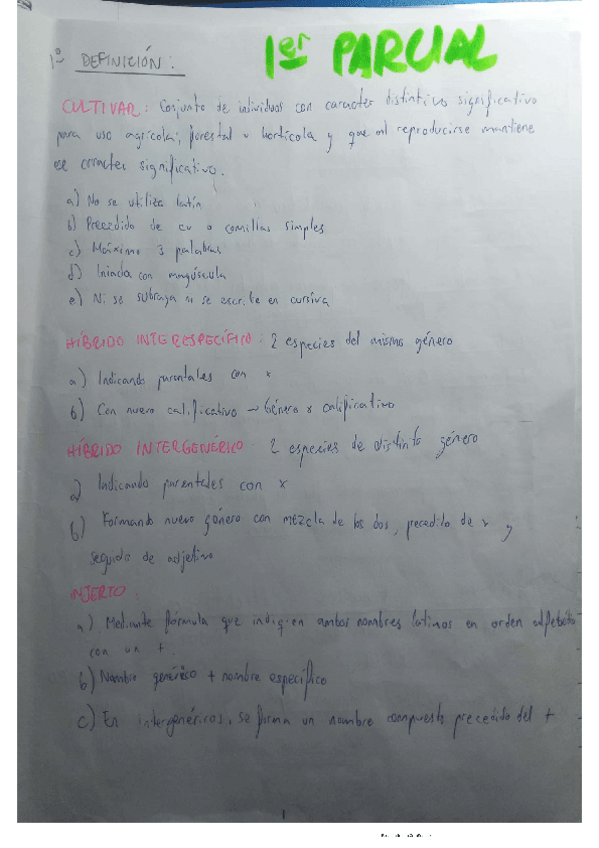 1er PARCIAL
1º DEFINICIÓN:
CULTIVAR: Conjunto de individuos con caracter distintivo significativo
para uso agrícola, forestal u hortícola y que al reproducirse mantiene
ese caracter significativo.
a) No se utiliza latín
b) Precedido de cv o comillas simples
c) Máximo 3 palabras
d) Iniciada con mayúscula
e) Ni se subraya ni se escribe en cursiva
HÍBRIDO INTERESPECÍFICO: 2 especies del mismo género
a) Indicando parentales con x
b) Con nuevo calificativo → Género x calificativo
HÍBRIDO INTERGENÉRICO: 2 especies de distinto género
a) Indicando parentales con x
b) Formando nuevo género con mezcla de los dos, precedido de x y
seguido de adjetivo
INJERTO:
a) Mediante fórmula que indiquen ambos nombres latinos en orden alfabético
con un +.
b) Nombre genérico + nombre específico
c) En intergenéricos, se forma un nombre compuesto precedido del +
1